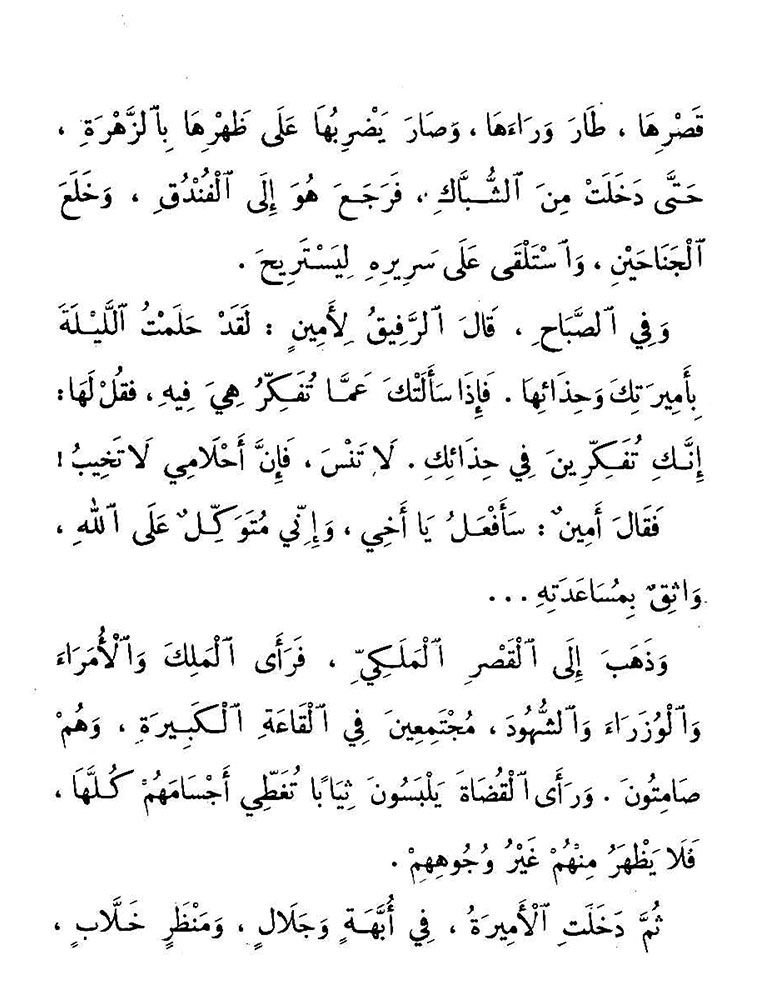 قَصْرِهَا ، طَارَ وَرَاءَهَا ، وَصَارَ يَضْرِبُهَا عَلَى ظَهْرِهَا بِٱلزَّهْرَةِ ،
حَتَّى دَخَلَتْ مِنَ ٱلشُّبَّاكِ ، فَرَجَعَ هُوَ إِلَى ٱلْفُنْدُقِ ، وَخَلَعَ
ٱلْجَنَاحَيْنِ ، وَٱسْتَلْقَى عَلَى سَرِيرِهِ لِيَسْتَرِيحَ .
وَفِي ٱلصَّبَاحِ ، قَالَ ٱلرَّفِيقُ لِأَمِينٍ : لَقَدْ حَلَمْتُ ٱللَّيْلَةَ
بِأَمِيرَتِكَ وَحِذَائِهَا . فَإِذَا سَأَلَتْكَ عَمَّا تُفَكِّرُ هِيَ فِيهِ ، فَقُلْ لَهَا :
إِنَّكِ تُفَكِّرِينَ فِي حِذَائِكِ . لَا تَنْسَ ، فَإِنَّ أَحْلَامِي لَا تَخِيبُ !
فَقَالَ أَمِينٌ : سَأَفْعَلُ يَا أَخِي ، وَإِنِّي مُتَوَكِّلٌ عَلَى ٱللّٰهِ ،
وَاثِقٌ بِمُسَاعَدَتِهِ ...
وَذَهَبَ إِلَى ٱلْقَصْرِ ٱلْمَلَكِيِّ ، فَرَأَى ٱلْمَلِكَ وَٱلْأُمَرَاءَ
وَٱلْوُزَرَاءَ وَٱلشُّهُودَ ، مُجْتَمِعِينَ فِي ٱلْقَاعَةِ ٱلْكَبِيرَةِ ، وَهُمْ
صَامِتُونَ . وَرَأَى ٱلْقُضَاةَ يَلْبَسُونَ ثِيَابًا تُغَطِّي أَجْسَامَهُمْ كُلَّهَا ،
فَلَا يَظْهَرُ مِنْهُمْ غَيْرُ وُجُوهِهِمْ .
ثُمَّ دَخَلَتِ ٱلْأَمِيرَةُ ، فِي أُبَّهَةٍ وَجَلَالٍ ، وَمَنْظَرٍ خَلَّابٍ ،